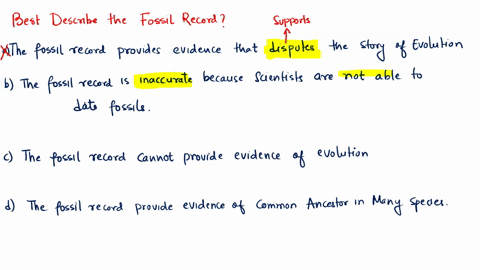 Best Describe the Fossil Record?
Supports
a) The fossil record provides evidence that disputes the story of Evolution
b) The fossil record is inaccurate because Scientists are not able to
date fossils.
c) The fossil record cannot provide evidence of evolution
d) The fossil record provide evidence of Common Ancestor in Many Species.